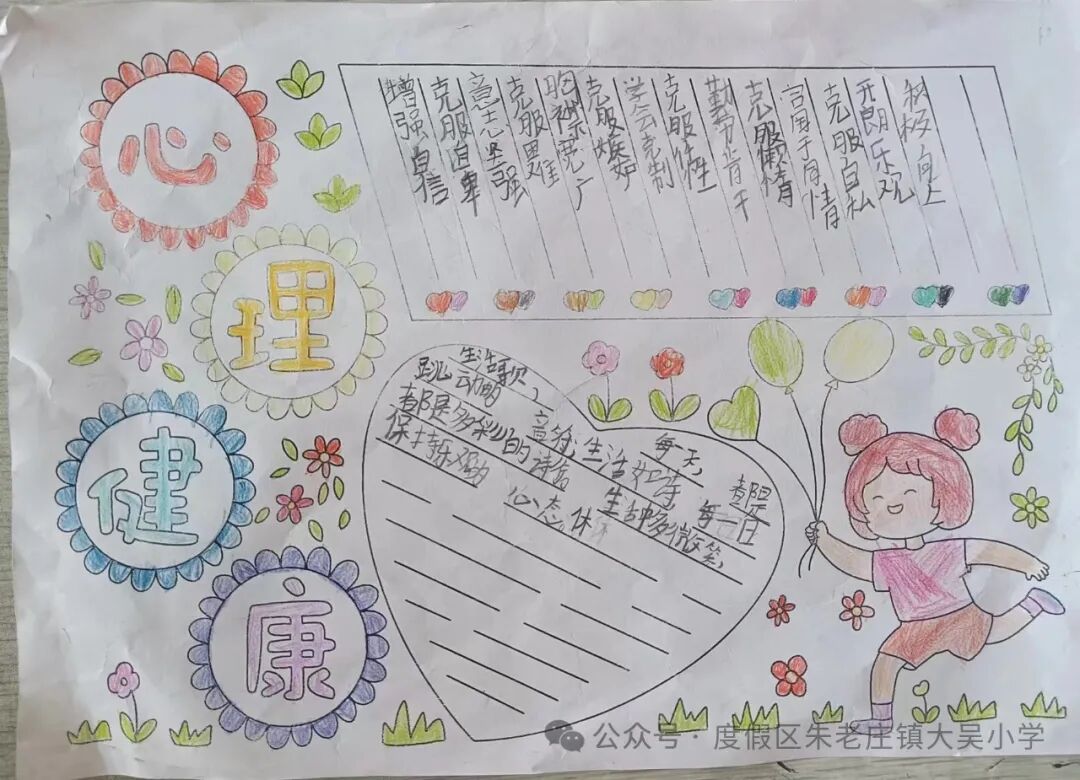 心
理
健
康
增强自信
克服自卑
意志坚强
克服畏难
胸襟宽广
克服嫉妒
学会克制
克服任性
勤劳肯干
克服懒惰
富于同情
克服自私
开朗乐观
积极向上
生活 每天 都是
跳动 音符;生活如诗,每一日
都是多彩的诗篇 多微笑,
保持乐观 心态
公众号·度假区朱老庄镇大吴小学